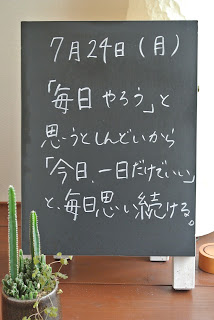 7月24日(月)
「毎日やろう」と
思うとしんどいから
「今日、一日だけでいい」
と、毎日思い続ける。